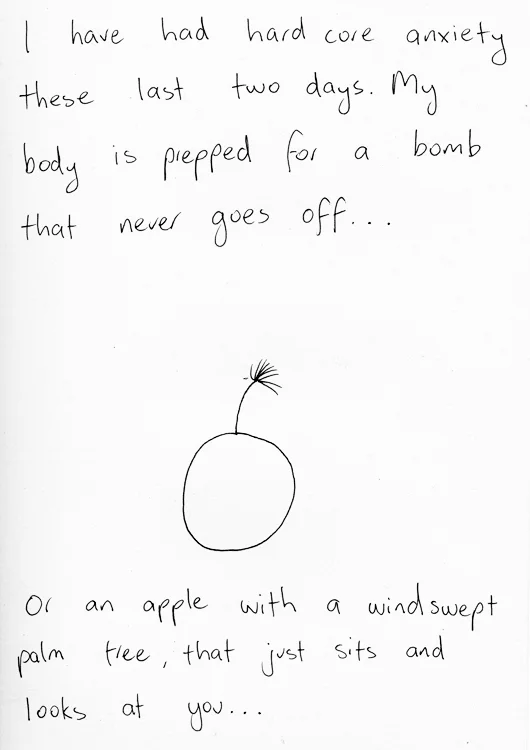 I have had hard core anxiety
these last two days. My
body is prepped for a bomb
that never goes off...
Or an apple with a windswept
palm tree, that just sits and
looks at you...